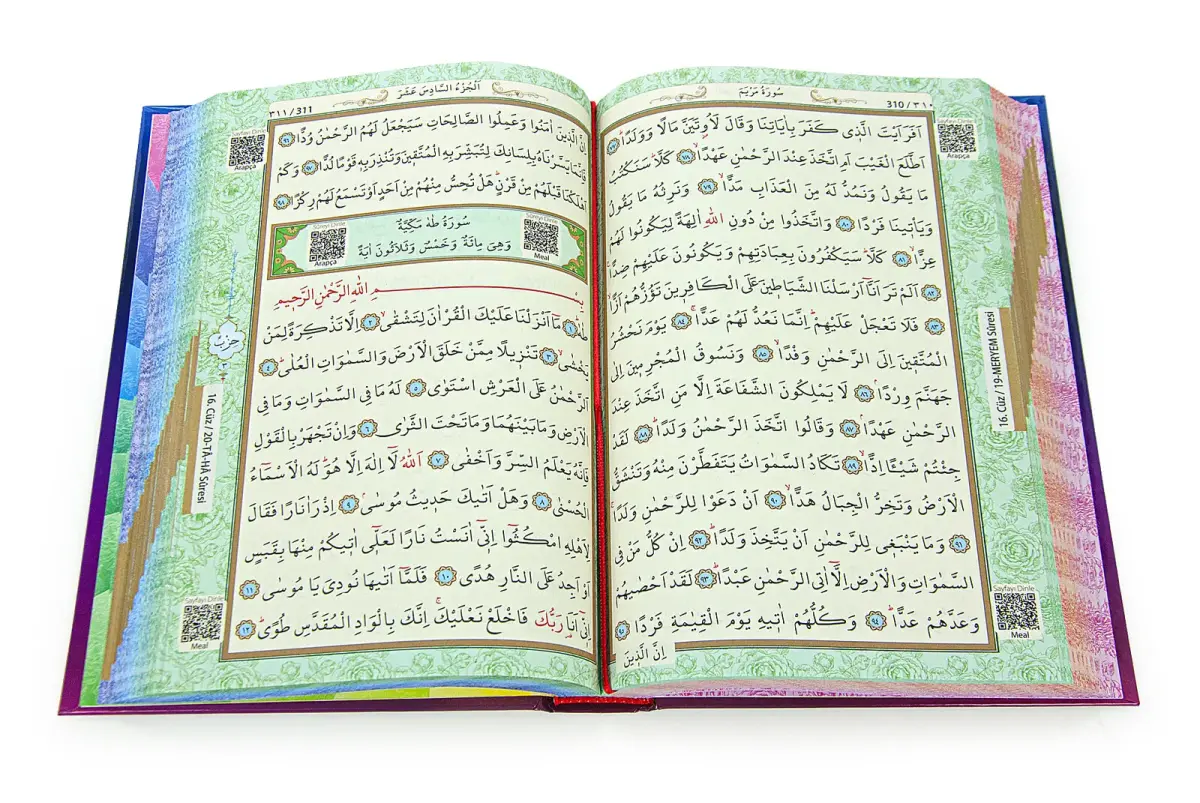 310 / ٣١٠
سُورَةُ مَرْيَمَ
اَفَرَاَيْتَ الَّذ۪ي كَفَرَ بِاٰيَاتِنَا وَقَالَ لَاُو۫تَيَنَّ مَالًا وَوَلَدًاۜ ٧٧
اَطَّلَعَ الْغَيْبَ اَمِ اتَّخَذَ عِنْدَ الرَّحْمٰنِ عَهْدًاۙ ٧٨ كَلَّاۜ سَنَكْتُبُ
مَا يَقُولُ وَنَمُدُّ لَهُ مِنَ الْعَذَابِ مَدًّاۙ ٧٩ وَنَرِثُهُ مَا يَقُولُ
وَيَأْت۪ينَا فَرْدًا ٨٠ وَاتَّخَذُوا مِنْ دُونِ اللّٰهِ اٰلِهَةً لِيَكُونُوا لَهُمْ
عِزًّاۙ ٨١ كَلَّاۜ سَيَكْفُرُونَ بِعِبَادَتِهِمْ وَيَكُونُونَ عَلَيْهِمْ ضِدًّا۟
٨٢ اَلَمْ تَرَ اَنَّٓا اَرْسَلْنَا الشَّيَاط۪ينَ عَلَى الْكَافِر۪ينَ تَؤُزُّهُمْ اَزًّاۙ
٨٣ فَلَا تَعْجَلْ عَلَيْهِمْۜ اِنَّمَا نَعُدُّ لَهُمْ عَدًّاۚ ٨٤ يَوْمَ نَحْشُرُ
الْمُتَّق۪ينَ اِلَى الرَّحْمٰنِ وَفْدًاۙ ٨٥ وَنَسُوقُ الْمُجْرِم۪ينَ اِلٰى
جَهَنَّمَ وِرْدًاۢ ٨٦ لَا يَمْلِكُونَ الشَّفَاعَةَ اِلَّا مَنِ اتَّخَذَ عِنْدَ
الرَّحْمٰنِ عَهْدًاۢ ٨٧ وَقَالُوا اتَّخَذَ الرَّحْمٰنُ وَلَدًاۜ ٨٨ لَقَدْ
جِئْتُمْ شَيْـًٔا اِدًّاۙ ٨٩ تَكَادُ السَّمٰوَاتُ يَتَفَطَّرْنَ مِنْهُ وَتَنْشَقُّ
الْاَرْضُ وَتَخِرُّ الْجِبَالُ هَدًّاۙ ٩٠ اَنْ دَعَوْا لِلرَّحْمٰنِ وَلَدًاۚ
٩١ وَمَا يَنْبَغ۪ي لِلرَّحْمٰنِ اَنْ يَتَّخِذَ وَلَدًاۜ ٩٢ اِنْ كُلُّ مَنْ فِي
السَّمٰوَاتِ وَالْاَرْضِ اِلَّٓا اٰتِي الرَّحْمٰنِ عَبْدًاۜ ٩٣ لَقَدْ اَحْصٰيهُمْ
وَعَدَّهُمْ عَدًّاۜ ٩٤ وَكُلُّهُمْ اٰت۪يهِ يَوْمَ الْقِيٰمَةِ فَرْدًا ٩٥
اِنَّ الَّذ۪ينَ
Sayfayı Dinle
Arapça
16. Cüz / 19-MERYEM Sûresi
Sayfayı Dinle
Meal
اَلْجُزْءُ السَّادِسَ عَشَرَ
٣١١ / 311
اِنَّ الَّذ۪ينَ اٰمَنُوا وَعَمِلُوا الصَّالِحَاتِ سَيَجْعَلُ لَهُمُ الرَّحْمٰنُ وُدًّا ٩٦
فَاِنَّمَا يَسَّرْنَاهُ بِلِسَانِكَ لِتُبَشِّرَ بِهِ الْمُتَّق۪ينَ وَتُنْذِرَ بِه۪ قَوْمًا لُدًّا ٩٧ وَكَمْ
اَهْلَكْنَا قَبْلَهُمْ مِنْ قَرْنٍۜ هَلْ تُحِسُّ مِنْهُمْ مِنْ اَحَدٍ اَوْ تَسْمَعُ لَهُمْ رِكْزًا ٩٨
سُورَةُ طٰهٰ مَكِّيَّةٌ
وَهِيَ مِائَةٌ وَخَمْسٌ وَثَلَاثُونَ اٰيَةً
Sûreyi Dinle
Arapça
Sûreyi Dinle
Meal
بِسْمِ اللّٰهِ الرَّحْمٰنِ الرَّح۪يمِ
طٰهٰۜ ١ مَٓا اَنْزَلْنَا عَلَيْكَ الْقُرْاٰنَ لِتَشْقٰىۙ ٢ اِلَّا تَذْكِرَةً لِمَنْ
يَخْشٰىۙ ٣ تَنْز۪يلًا مِمَّنْ خَلَقَ الْاَرْضَ وَالسَّمٰوَاتِ الْعُلٰىۜ ٤
اَلرَّحْمٰنُ عَلَى الْعَرْشِ اسْتَوٰى ٥ لَهُ مَا فِي السَّمٰوَاتِ وَمَا فِي
الْاَرْضِ وَمَا بَيْنَهُمَا وَمَا تَحْتَ الثَّرٰى ٦ وَاِنْ تَجْهَرْ بِالْقَوْلِ
فَاِنَّهُ يَعْلَمُ السِّرَّ وَاَخْفٰى ٧ اَللّٰهُ لَٓا اِلٰهَ اِلَّا هُوَۜ لَهُ الْاَسْمَٓاءُ
الْحُسْنٰى ٨ وَهَلْ اَتٰيكَ حَد۪يثُ مُوسٰىۢ ٩ اِذْ رَاٰ نَارًا فَقَالَ
لِاَهْلِهِ امْكُثُٓوا اِنّ۪ٓي اٰنَسْتُ نَارًا لَعَلّ۪ٓي اٰت۪يكُمْ مِنْهَا بِقَبَسٍ
اَوْ اَجِدُ عَلَى النَّارِ هُدًى ١٠ فَلَمَّٓا اَتٰيهَا نُودِيَ يَا مُوسٰى ١١
اِنّ۪ٓي اَنَا۬ رَبُّكَ فَاخْلَعْ نَعْلَيْكَۚ اِنَّكَ بِالْوَادِ الْمُقَدَّسِ طُوًىۜ ١٢
Sayfayı Dinle
Arapça
حِزْبُ
٣
16. Cüz / 20-TÂ-HÂ Sûresi
Sayfayı Dinle
Meal